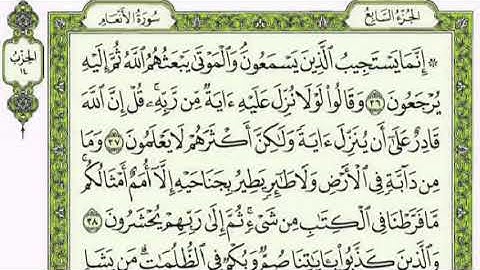 سُورَةُ الأَنْعَامِ
الجُزْءُ السَّابِعُ
الحِزْبُ
١٤
۞ إِنَّمَا يَسْتَجِيبُ ٱلَّذِينَ يَسْمَعُونَۘ وَٱلْمَوْتَىٰ يَبْعَثُهُمُ ٱللَّهُ ثُمَّ إِلَيْهِ
يُرْجَعُونَ ٣٦ وَقَالُوا۟ لَوْلَا نُزِّلَ عَلَيْهِ ءَايَةٌ مِّن رَّبِّهِۦۚ قُلْ إِنَّ ٱللَّهَ
قَادِرٌ عَلَىٰٓ أَن يُنَزِّلَ ءَايَةً وَلَـٰكِنَّ أَكْثَرَهُمْ لَا يَعْلَمُونَ ٣٧ وَمَا
مِن دَآبَّةٍ فِى ٱلْأَرْضِ وَلَا طَـٰٓئِرٍ يَطِيرُ بِجَنَاحَيْهِ إِلَّآ أُمَمٌ أَمْثَالُكُمۚ
مَّا فَرَّطْنَا فِى ٱلْكِتَـٰبِ مِن شَىْءٍۚ ثُمَّ إِلَىٰ رَبِّهِمْ يُحْشَرُونَ ٣٨
وَٱلَّذِينَ كَذَّبُوا۟ بِـَٔايَـٰتِنَا صُمٌّ وَبُكْمٌ فِى ٱلظُّلُمَـٰتِۗ مَن يَشَإِ